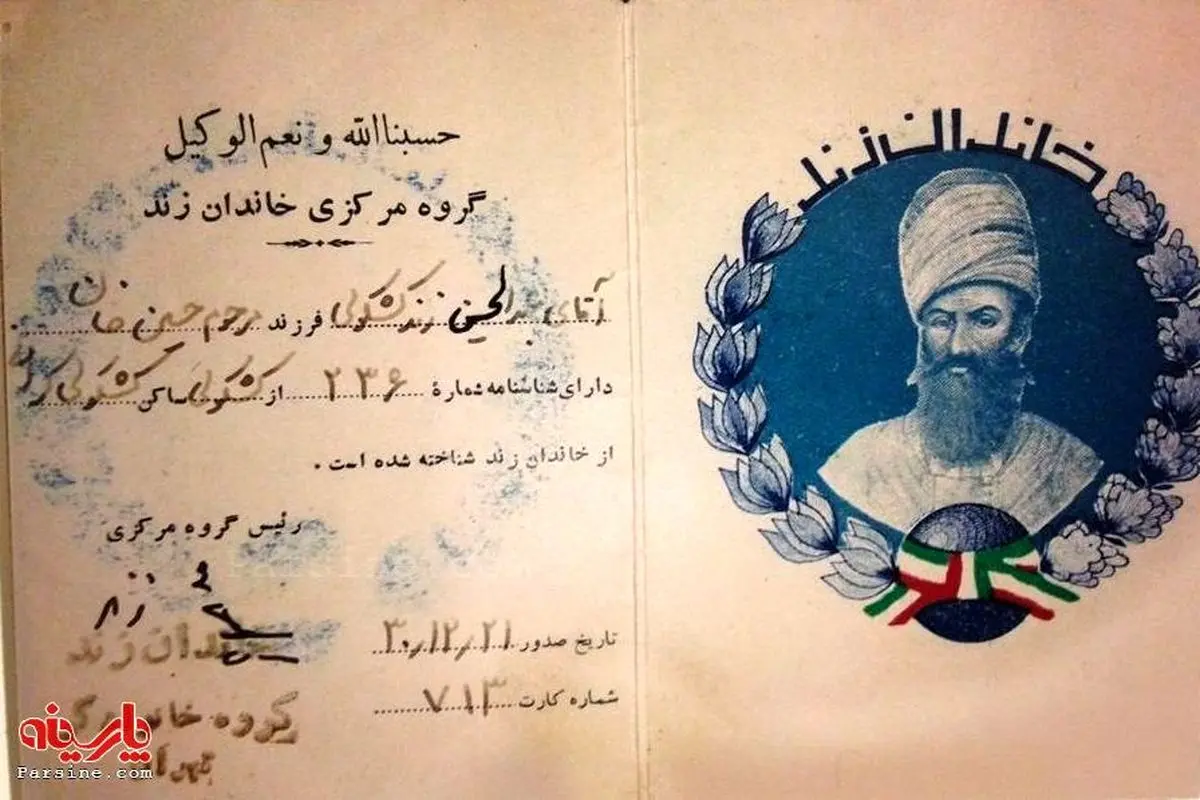 خاندان زند
حسبنا الله و نعم الوکیل
گروه مرکزی خاندان زند
آقای عبدالحسین زند کشکولی فرزند مرحوم حسین خان
دارای شناسنامه شمارهٔ ۲۳۶ از کشکولی ساکن کشکولی
از خاندان زند شناخته شده است.
رئیس گروه مرکزی
تاریخ صدور ۳۰/۱۲/۲۱
شماره کارت ۷۱۳
خاندان زند
گروه
تهران
پارسینه
Parsine.com